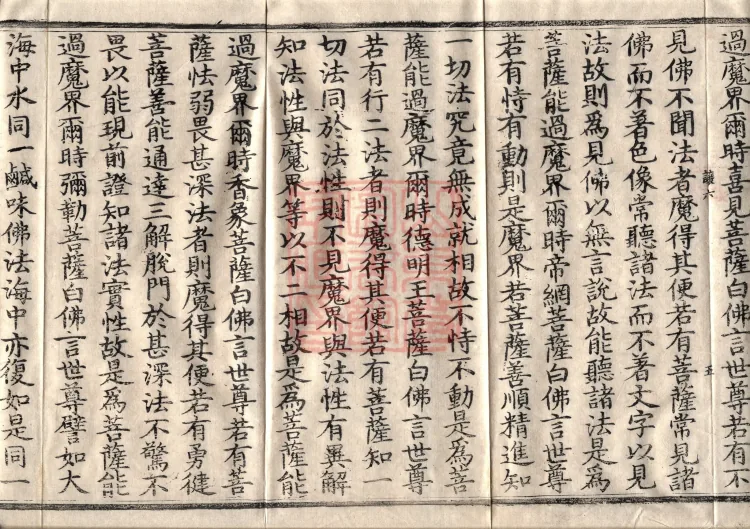 過魔界爾時喜見菩薩白佛言世尊若有不
見佛不聞法者魔得其便若有菩薩常見諸
佛而不著色像常聽諸法而不著文字以見
法故則為見佛以無言說故能聽諸法是為
菩薩能過魔界爾時帝網菩薩白佛言世尊
若有恃有動則是魔界若菩薩善順精進知
一切法究竟無成就相故不恃不動是為菩
薩能過魔界爾時德明王菩薩白佛言世尊
若有行二法者則魔得其便若有菩薩知一
切法同於法性則不見魔界與法性有異解
知法性與魔界等以不二相故是為菩薩能
過魔界爾時香象菩薩白佛言世尊若有菩
薩怯弱畏甚深法者則魔得其便若有勇健
菩薩善能通達三解脫門於甚深法不驚不
畏以能現前證知諸法實性故是為菩薩能
過魔界爾時彌勒菩薩白佛言世尊譬如大
海中水同一鹹味佛法海中亦復如是同一
五